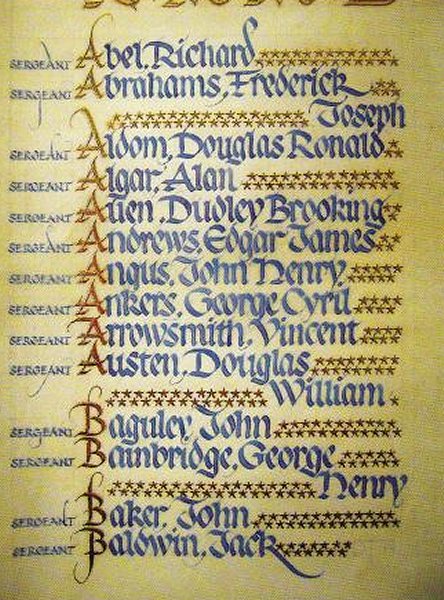 SERGEANT Abel, Richard
SERGEANT Abrahams, Frederick
Joseph
SERGEANT Aldom, Douglas Ronald
SERGEANT Algar, Alan
SERGEANT Allen, Dudley Brooking
SERGEANT Andrews, Edgar James
SERGEANT Angus, John Henry
SERGEANT Ankers, George Cyril
SERGEANT Arrowsmith, Vincent
SERGEANT Austen, Douglas
William
SERGEANT Baguley, John
SERGEANT Bainbridge, George
Henry
SERGEANT Baker, John
SERGEANT Baldwin, Jack